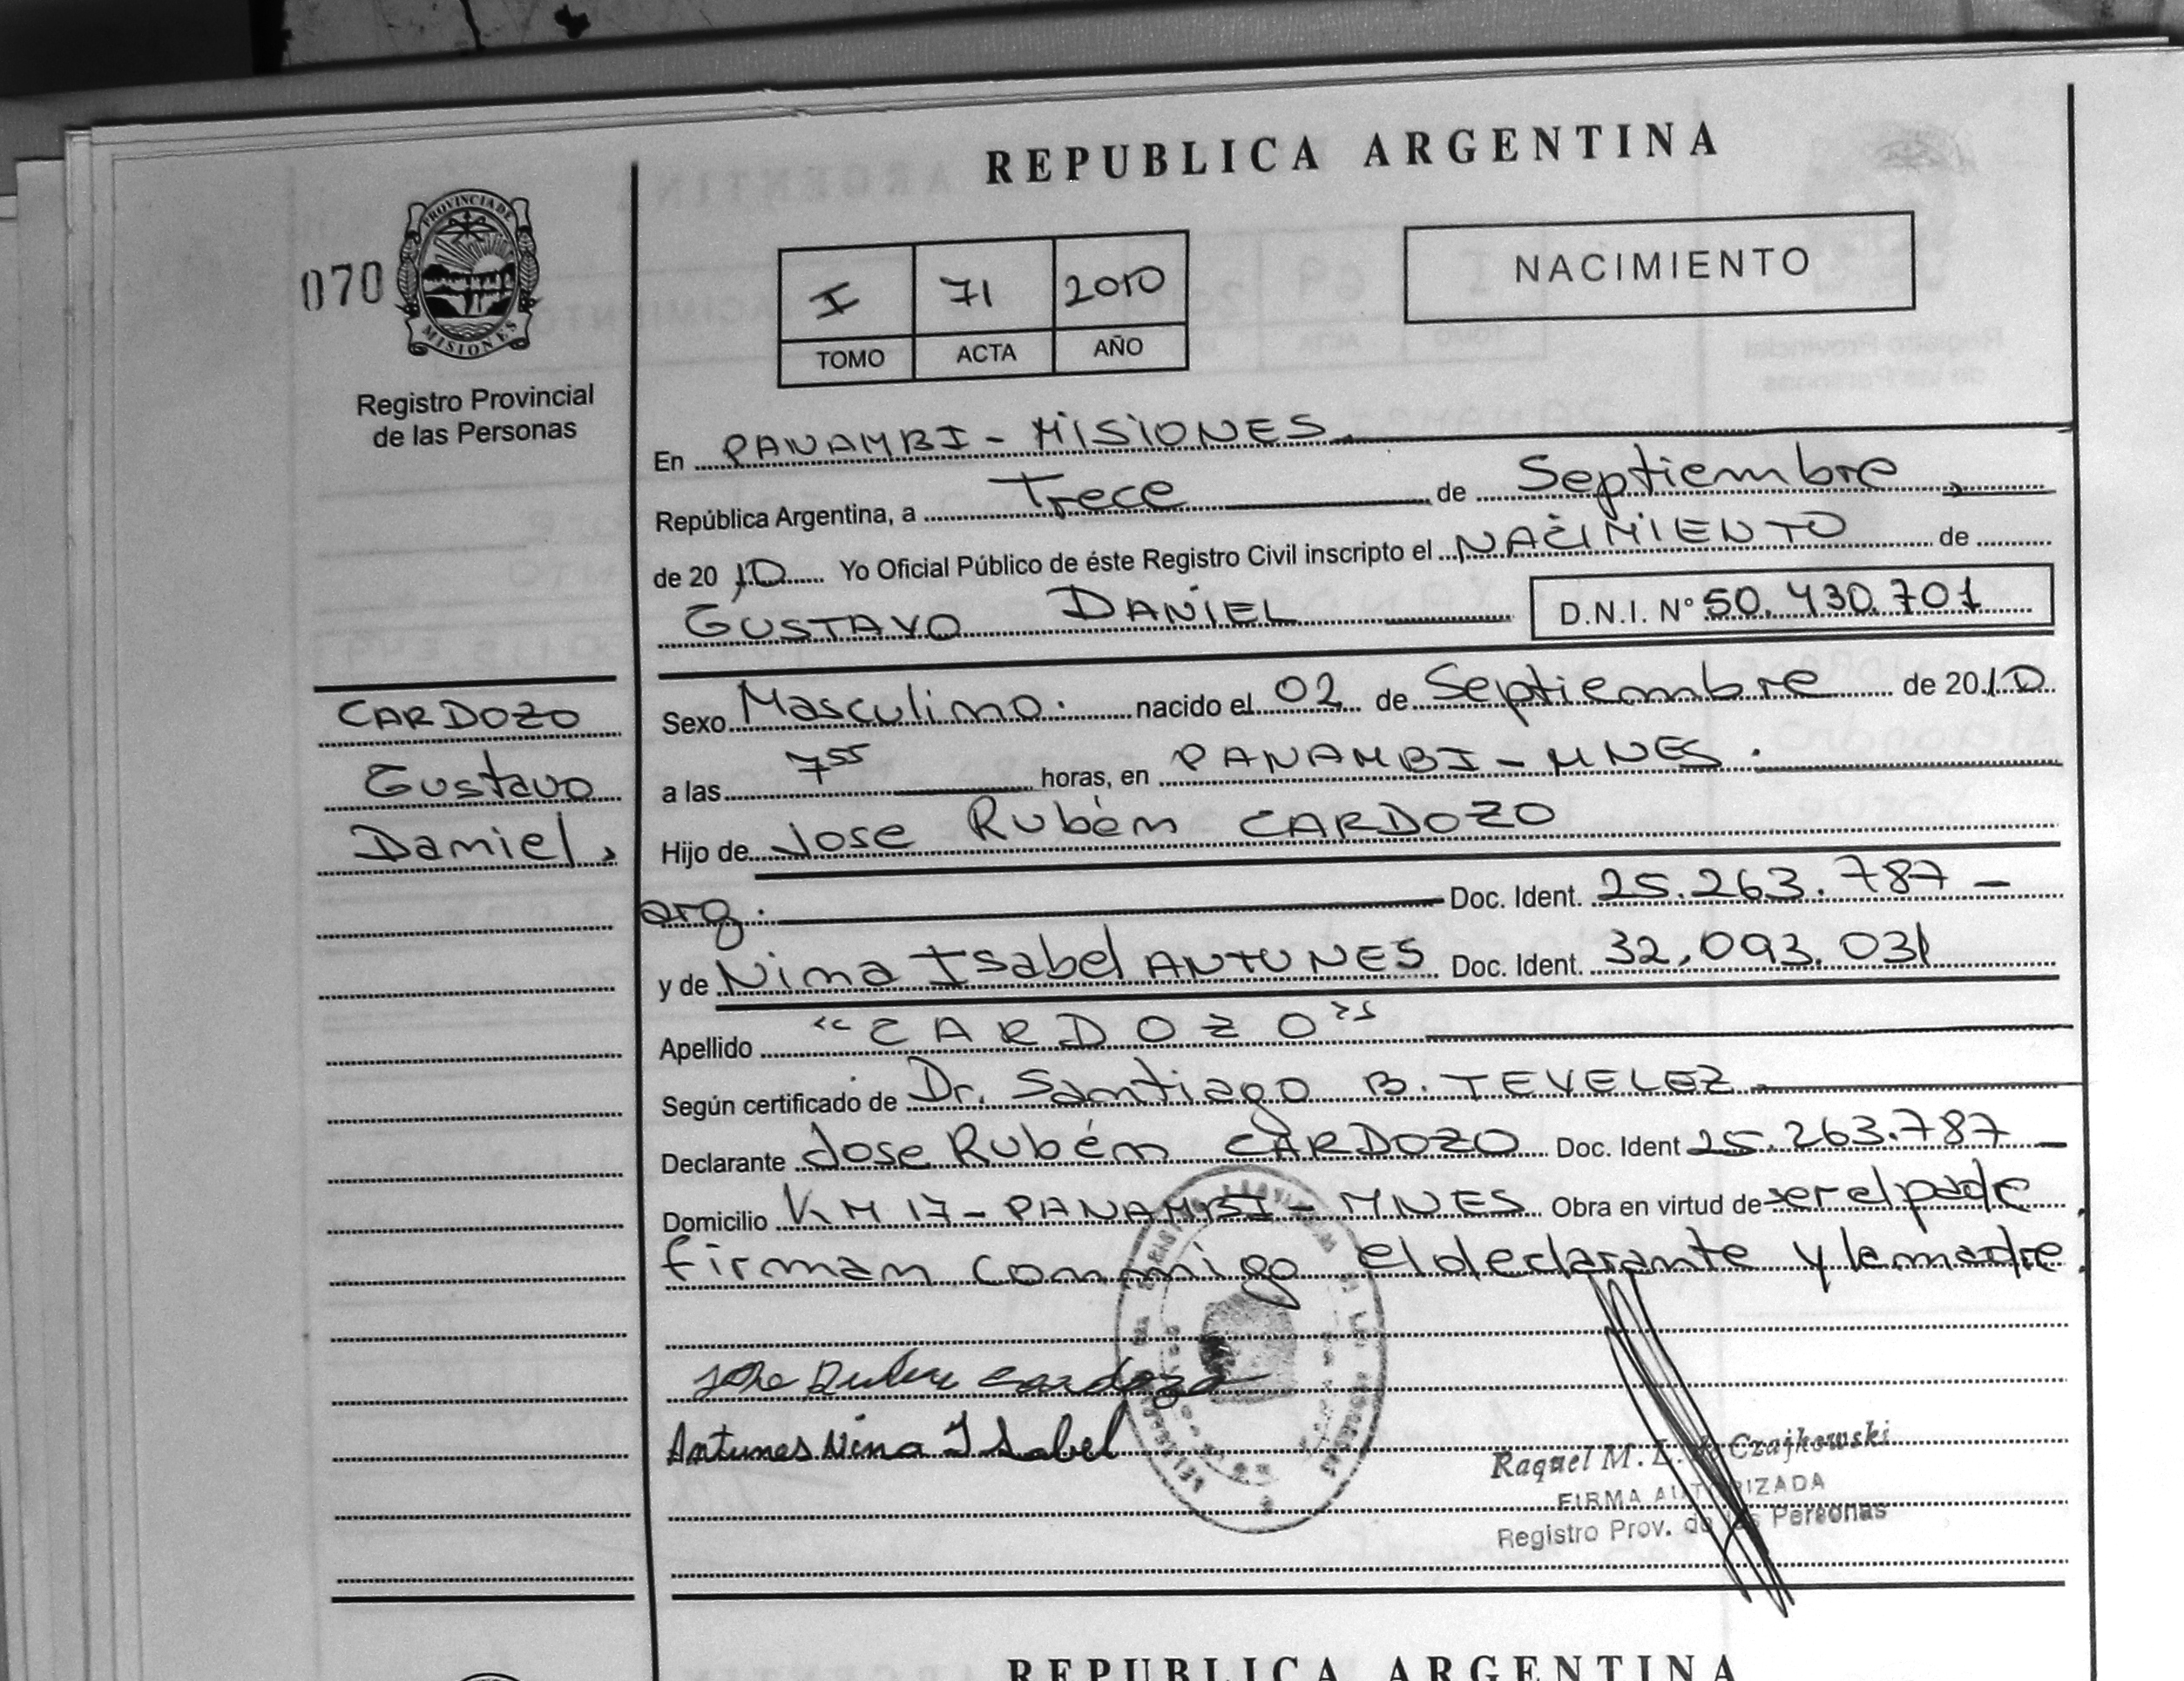 REPUBLICA ARGENTINA
PROVINCIA DE
MISIONES
070
Registro Provincial
de las Personas
I 71 2010
TOMO ACTA AÑO
NACIMIENTO
En PANAMBI - MISIONES
República Argentina, a Trece de Septiembre,
de 2010 Yo Oficial Público de éste Registro Civil inscripto el NACIMIENTO de
GUSTAVO DANIEL D.N.I. N° 50.430.701
CARDOZO
Gustavo
Daniel,
Sexo Masculino. nacido el 02 de Septiembre de 2010
a las 7 55 horas, en PANAMBI - MNES.
Hijo de Jose Rubén CARDOZO
arg. Doc. Ident. 25.263.787 -
y de Nina Isabel ANTUNES Doc. Ident. 32.093.031
Apellido "CARDOZO"
Según certificado de Dr. Santiago B. TEVELEZ
Declarante Jose Rubén CARDOZO Doc. Ident 25.263.787 -
Domicilio KM 17 - PANAMBI - MNES Obra en virtud de ser el padre,
firman conmigo el declarante y la madre.
Jose Ruben Cardozo
Antunes Nina Isabel
Raquel M. Czajkowski
FIRMA AUTORIZADA
Registro Prov. de las Personas
REPUBLICA ARGENTINA